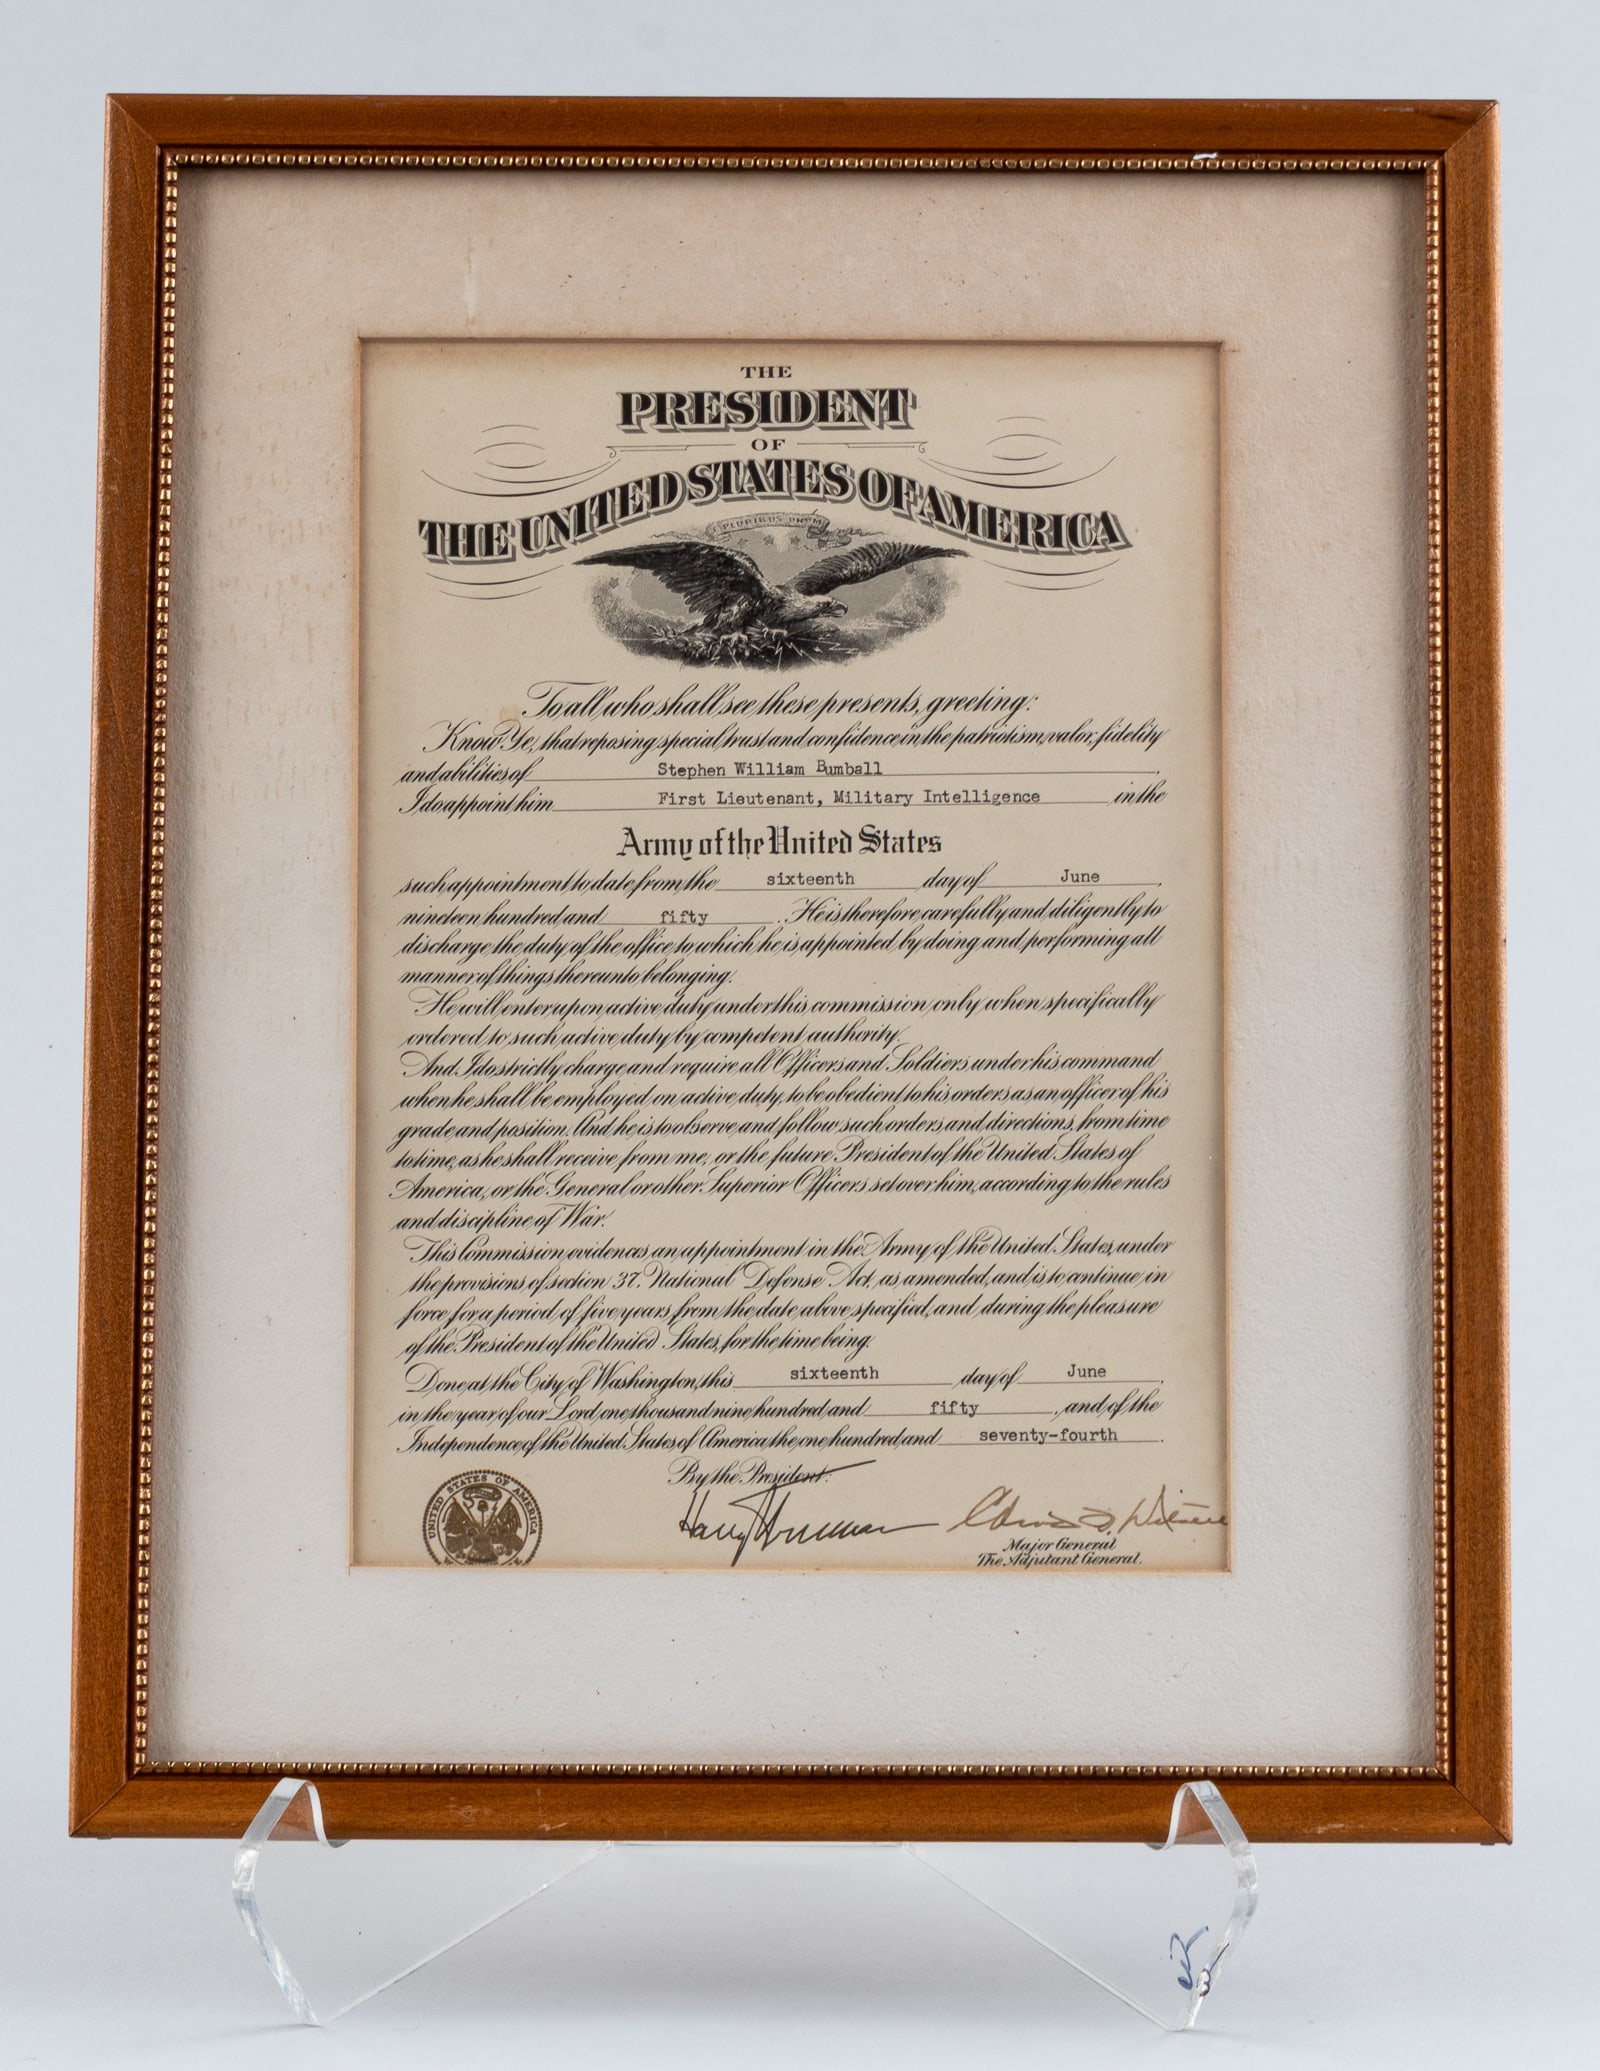 THE
PRESIDENT
OF
THE UNITED STATES OF AMERICA
E PLURIBUS UNUM
To all who shall see these presents, greeting:
Know Ye, that reposing special trust and confidence in the patriotism, valor, fidelity
and abilities of Stephen William Bumball,
I do appoint him First Lieutenant, Military Intelligence in the
Army of the United States
such appointment to date from the sixteenth day of June,
nineteen hundred and fifty. He is therefore carefully and diligently to
discharge the duty of the office to which he is appointed by doing and performing all
manner of things thereunto belonging.
He will enter upon active duty under this commission only when specifically
ordered to such active duty by competent authority.
And I do strictly charge and require all Officers and Soldiers under his command
when he shall be employed on active duty, to be obedient to his orders as an officer of his
grade and position. And he is to observe and follow such orders and directions, from time
to time, as he shall receive from me, or the future President of the United States of
America, or the General or other Superior Officers set over him, according to the rules
and discipline of War.
This Commission evidences an appointment in the Army of the United States, under
the provisions of section 37, National Defense Act, as amended, and is to continue in
force for a period of five years from the date above specified, and during the pleasure
of the President of the United States, for the time being.
Done at the City of Washington, this sixteenth day of June,
in the year of our Lord one thousand nine hundred and fifty, and of the
Independence of the United States of America the one hundred and seventy-fourth.
By the President:
UNITED STATES OF AMERICA
Harry Truman
Major General
The Adjutant General.